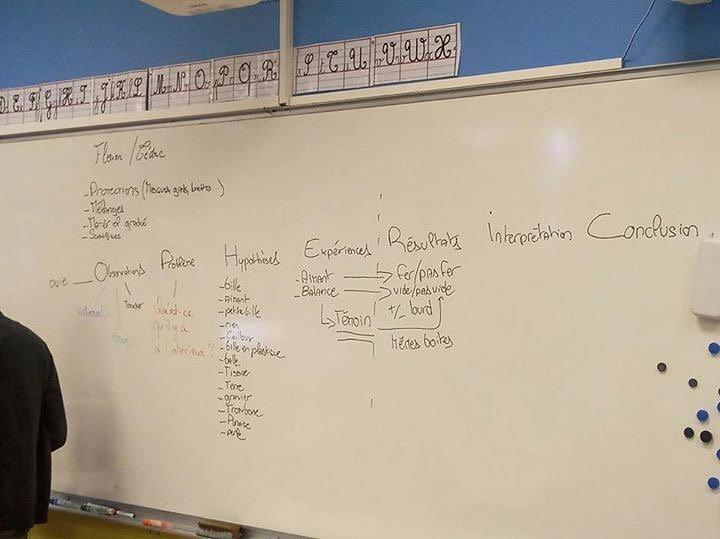 D E F G H I J K L M N O P Q R S T U V W X
Florian / Cédric
- Protections (Masques, gants, lunettes)
- Mélanges
- Matériel gradué
Observations
ouïe
odorat
Toucher
Problème
Qu'est-ce
qu'il y a
à l'intérieur ?
Hypothèses
- bille
- Aimant
- petite bille
- rien
- Caillou
- bille en plastique
- balle
- Tissue
- Terre
- gravier
- Trombone
- Punaise
- perle
Expériences
- Aimant
- Balance
Témoin
Résultats
fer/pas fer
vide/pas vide
+/- lourd
Mêmes boites
Interprétation
Conclusion